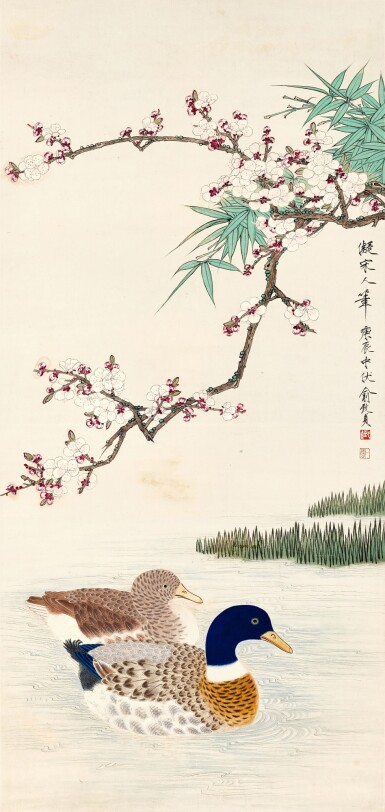 擬宋人筆 庚辰中伏 俞致貞